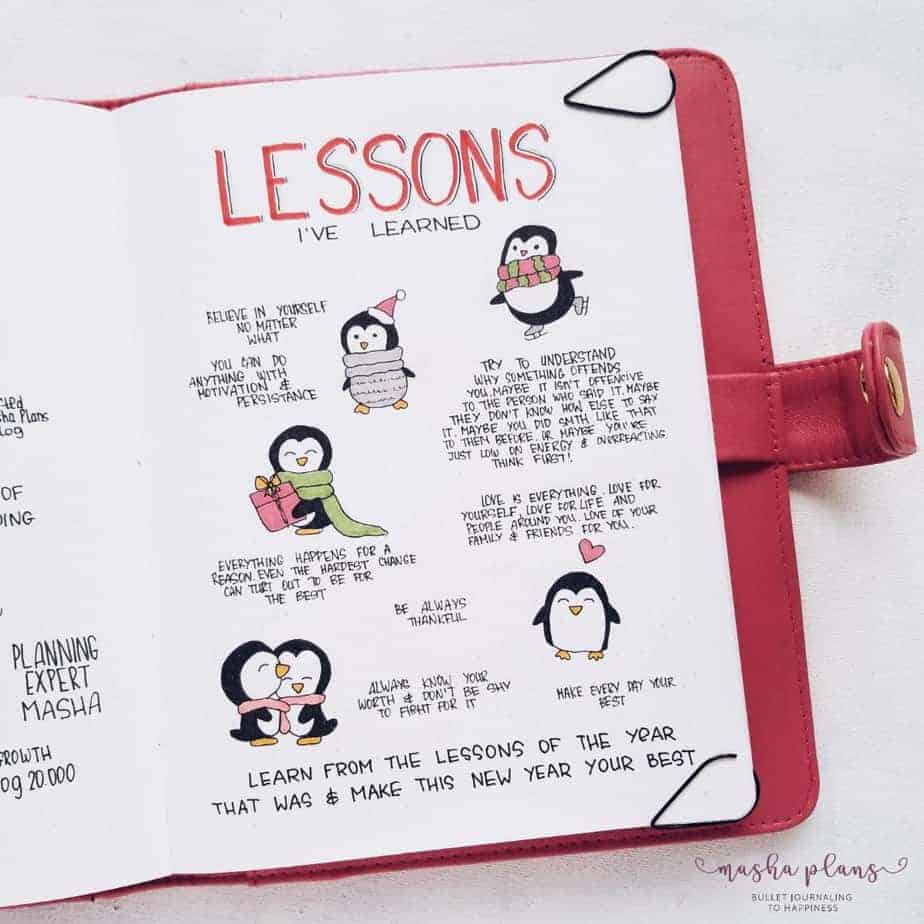 LESSONS
I'VE LEARNED
BELIEVE IN YOURSELF
NO MATTER
WHAT
YOU CAN DO
ANYTHING WITH
MOTIVATION &
PERSISTANCE
TRY TO UNDERSTAND
WHY SOMETHING OFFENDS
YOU. MAYBE IT ISN'T OFFENCIVE
TO THE PERSON WHO SAID IT. MAYBE
THEY DON'T KNOW HOW ELSE TO SAY
IT. MAYBE YOU DID SMTH LIKE THAT
TO THEM BEFORE. OR MAYBE YOU'RE
JUST LOW ON ENERGY & OVERREACTING.
THINK FIRST!
LOVE IS EVERYTHING. LOVE FOR
YOURSELF, LOVE FOR LIFE AND
PEOPLE AROUND YOU. LOVE OF YOUR
FAMILY & FRIENDS FOR YOU.
EVERYTHING HAPPENS FOR A
REASON. EVEN THE HARDEST CHANGE
CAN TURT OUT TO BE FOR
THE BEST
BE ALWAYS
THANKFUL
ALWAYS KNOW YOUR
WORTH & DON'T BE SHY
TO FIGHT FOR IT
MAKE EVERY DAY YOUR
BEST
LEARN FROM THE LESSONS OF THE YEAR
THAT WAS & MAKE THIS NEW YEAR YOUR BEST
sha Plans
log
OF
DING
PLANNING
EXPERT
MASHA
GROWTH
og 20.000
masha plans
BULLET JOURNALING
TO HAPPINESS